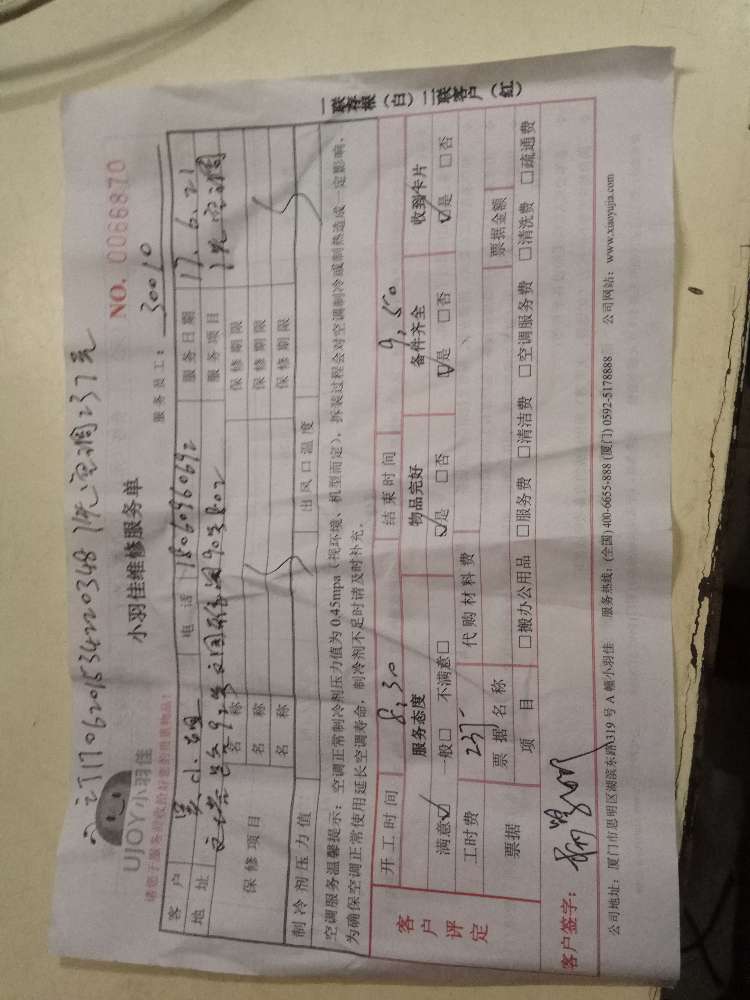 1706201534220348 洗空调237元
UJOY小羽佳
小羽佳维修服务单
NO. 0066870
请您于服务前收拾好您的贵重物品
服务员工：30010
客户 电话 18060960692 服务日期 17.6.21
地址 服务项目 洗空调
保修项目 名称 保修期限
名称 保修期限
名称 保修期限
制冷剂压力值 出风口温度
空调服务温馨提示：空调正常制冷剂压力值为0.45mpa（视环境、机型而定），拆装过程会对空调制冷或制热造成一定影响，
为确保空调正常使用延长空调寿命，制冷剂不足时请及时补充。
客户评定
开工时间 8,30 结束时间 9,50
服务态度 物品完好 备件齐全 收到卡片
满意☑ 一般□ 不满意□ ☑是 □否 ☑是 □否 ☑是 □否
工时费 237 代购材料费
票据 票据名称 票据金额
项目 □搬办公用品 □服务费 □清洁费 □空调服务费 □清洗费 □疏通费
客户签字：
公司地址：厦门市思明区湖滨东路319号A幢小羽佳 服务热线：(全国)400-6655-888 (厦门)0592-5178888 公司网站：www.xiaoyujia.com
一联存根（白）二联客户（红）